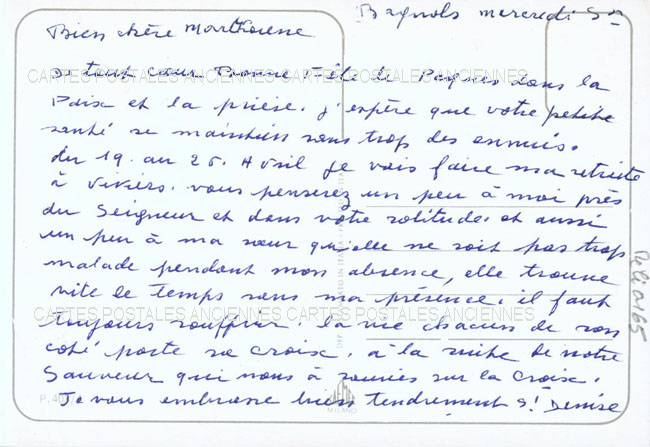 Bagnols mercredi St
Bien chère Marthoune
de tout cœur Bonne Fête de Pâques dans la
Paix et la prière. j'espère que votre petite
santé se maintien sans trop des ennuis.
du 19. au 25. Avril je vais faire ma retraite
à Viviers. vous penserez un peu à moi près
du Seigneur et dans votre solitude. et aussi
un peu à ma sœur qu'elle ne soit pas trop
malade pendant mon absence, elle trouve
vite le temps sans ma présence. il faut
toujours souffrir. la vie chacun de son
coté porte sa croix. à la suite de notre
Sauveur qui nous à sauvés sur la Croix.
Je vous embrasse bien tendrement Sr Denise
CARTES POSTALES ANCIENNES CARTES POSTALES ANCIENNES
CARTES POSTALES ANCIENNES CARTES POSTALES ANCIENNES
MILANO